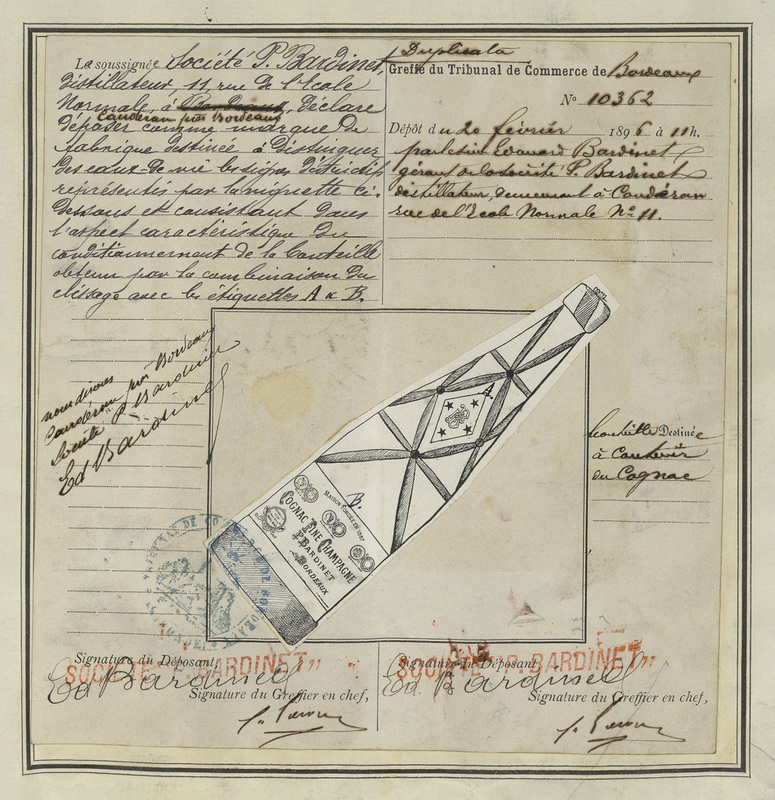 La soussignée Société P. Bardinet,
distillateur, 11 rue de l'Ecole
Normale, à Bordeaux, déclare
Caudéran près Bordeaux
déposer comme marque de
fabrique destinée à distinguer
des eaux-de-vie les signes distinctifs
représentés par la vignette ci-
dessous et consistant dans
l'aspect caractéristique du
conditionnement de la bouteille
obtenu par la combinaison du
clissage avec les étiquettes A & B.
Duplicata
Greffe du Tribunal de Commerce de Bordeaux
No 10362
Dépôt du 20 février 1896 à 11 h.
par le sieur Edouard Bardinet
gérant de la société P. Bardinet
distillateur, demeurant à Caudéran
rue de l'Ecole Normale No 11.
Caudéran près Bordeaux
Société P. Bardinet
Ed Bardinet
A.
B.
MAISON FONDÉE EN 1857
COGNAC FINE CHAMPAGNE
P. BARDINET
BORDEAUX
bouteille Destinée
à contenir
du Cognac
Signature du Déposant
SOCIÉTÉ "P. BARDINET"
Ed Bardinet
Signature du Greffier en chef,
Signature du Déposant
SOCIÉTÉ "P. BARDINET"
Ed Bardinet
Signature du Greffier en chef,